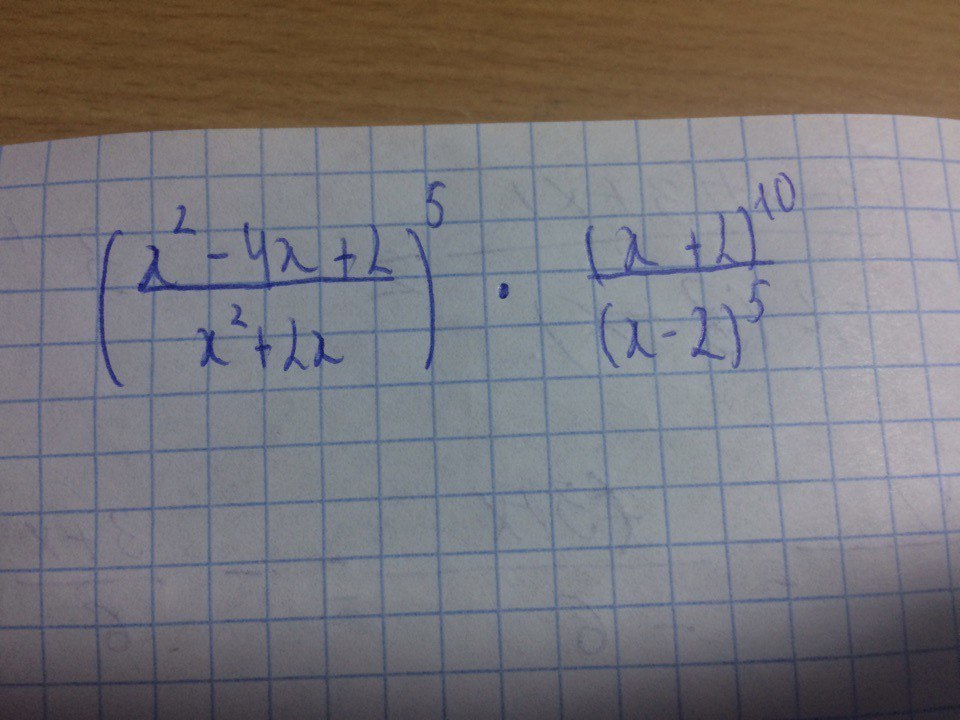 (x² - 4x + 2 / x² + 2x)⁵ · (x + 2)¹⁰ / (x - 2)⁵